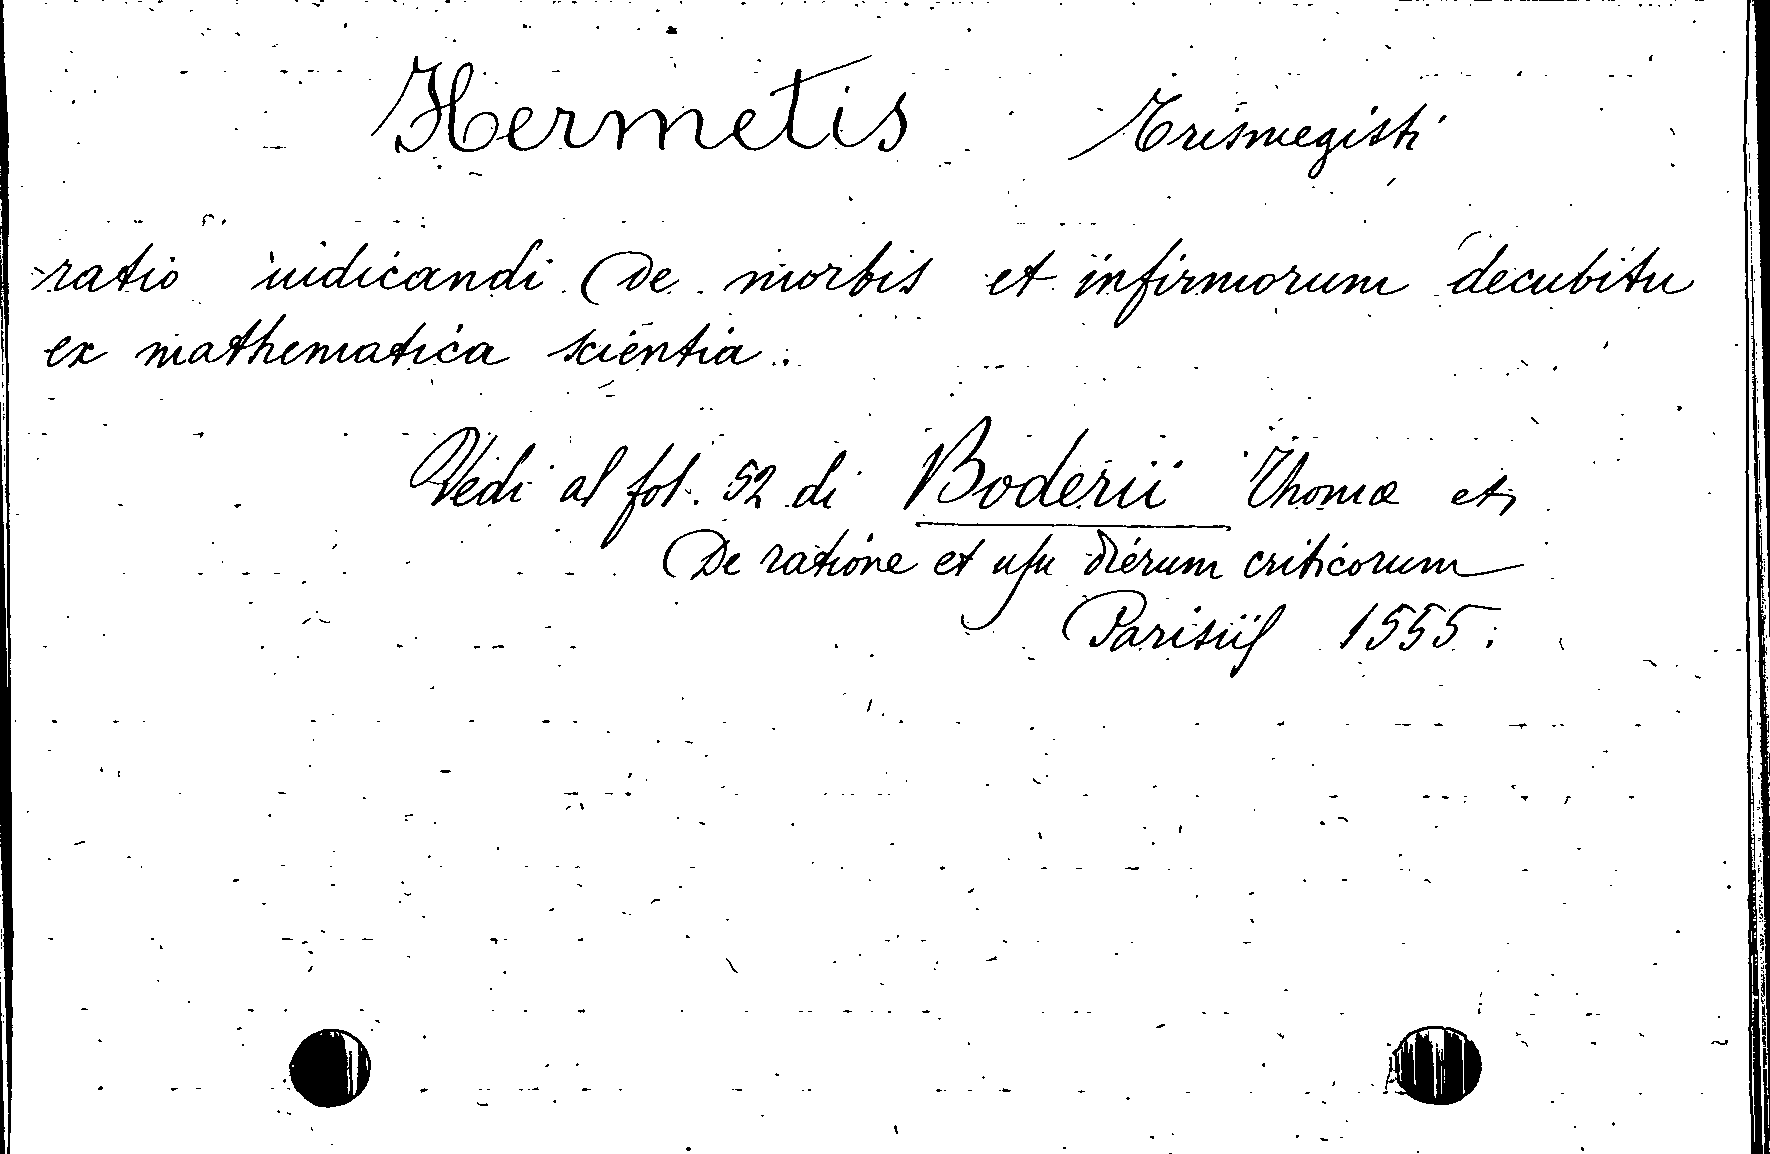 Hermetis Trismegisti
ratio iudicandi De morbis et infirmorum decubitu
ex mathematica scientia.
Vedi al fol. 52 di Boderii Thomæ etc
De ratione et uſu dierum criticorum
Parisiiſ 1555.